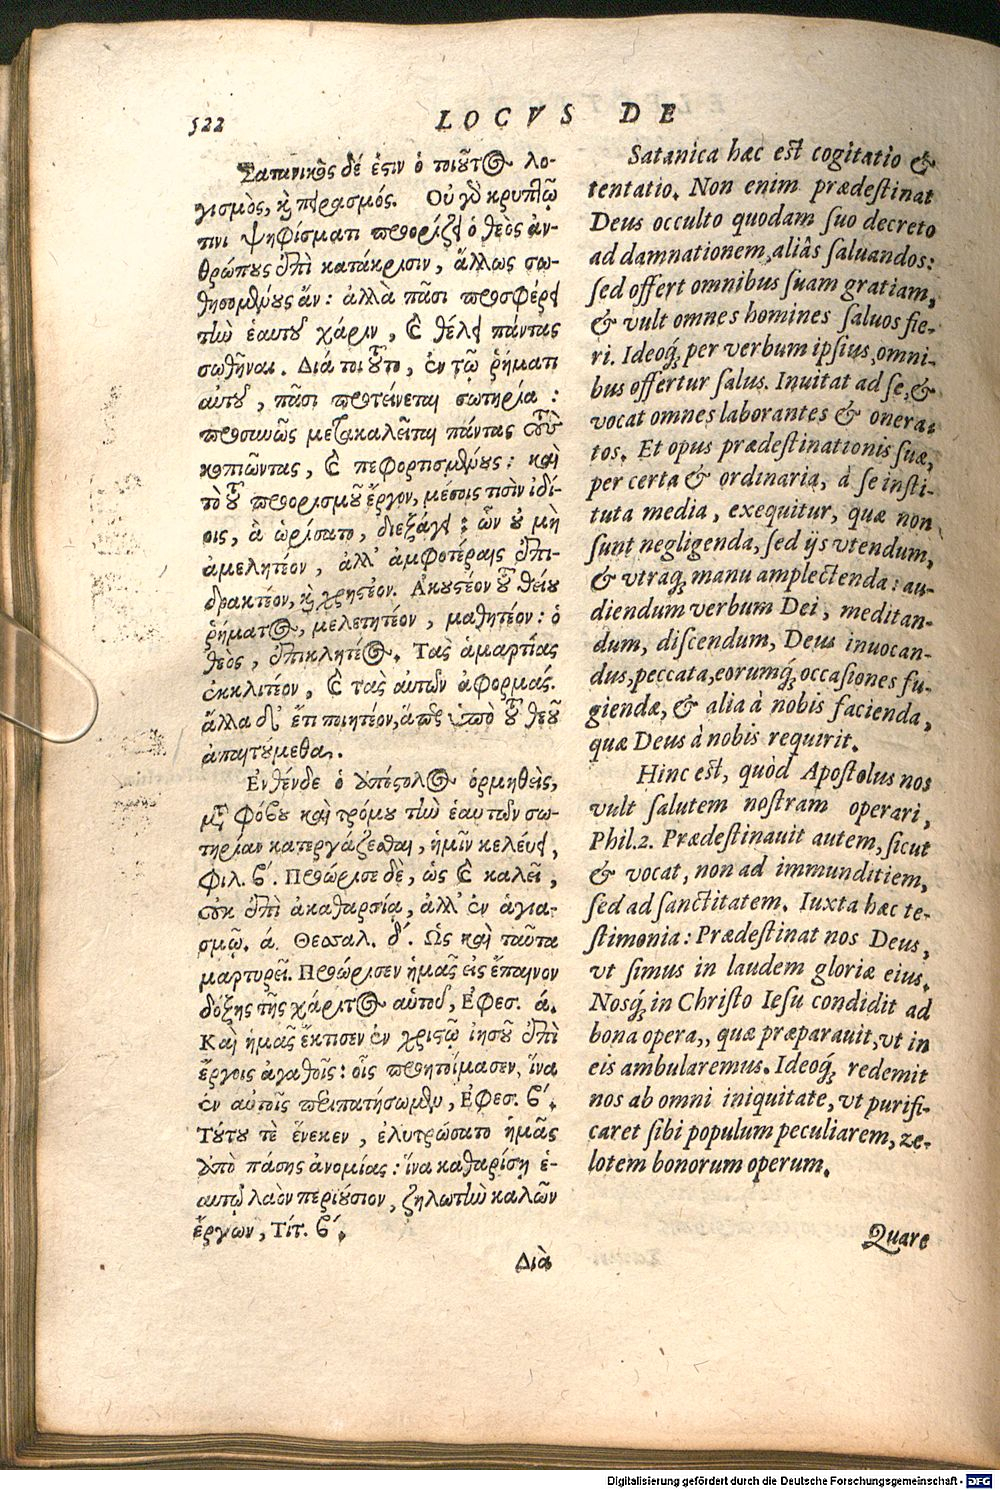 522
LOCVS DE
Σατανικὸς δέ ἐστιν ὁ τοιοῦτος λο-
γισμὸς, καὶ πειρασμός. Οὐ γὰρ κρυπτῷ
τινι ψηφίσματι προορίζει ὁ θεὸς ἀν-
θρώπους ἐπὶ κατάκρισιν, ἄλλως σω-
θησομένους ἄν: ἀλλὰ πᾶσι προσφέρει
τὴν ἑαυτοῦ χάριν, καὶ θέλει πάντας
σωθῆναι. Διά τοι τοῦτο, ἐν τῷ ῥήματι
αὐτοῦ, πᾶσι προτείνεται σωτηρία:
προσκαλεῖται πάντας τοὺς
κοπιῶντας, καὶ πεφορτισμένους: καὶ
τὸ τοῦ προορισμοῦ ἔργον, μέσοις τισὶν ἰδί-
οις, ἃ ὡρίσατο, διεξάγει: ὧν οὐ μὴ
ἀμελητέον, ἀλλ' ἀμφοτέραις ἐπι-
δρακτέον, καὶ χρηστέον. Ἀκουστέον τοῦ θείου
ῥήματος, μελετητέον, μαθητέον: ὁ
θεὸς, ἐπικλητέος. Τὰς ἁμαρτίας
ἐκκλιτέον, καὶ τὰς αὐτῶν ἀφορμάς.
ἄλλα δ' ἔτι ποιητέον, ἅπερ ὑπὸ τοῦ θεοῦ
ἀπαιτούμεθα.
Ἐνθένδε ὁ ἀπόστολος ὁρμηθεὶς,
μετὰ φόβου καὶ τρόμου τὴν ἑαυτῶν σω-
τηρίαν κατεργάζεσθαι, ἡμῖν κελεύει,
Φιλ. β'. Προώρισε δὲ, ὡς καὶ καλεῖ,
οὐκ ἐπὶ ἀκαθαρσίᾳ, ἀλλ' ἐν ἁγια-
σμῷ. ά. Θεσσαλ. δ'. Ὡς καὶ ταῦτα
μαρτυρεῖ. Προώρισεν ἡμᾶς εἰς ἔπαινον
δόξης τῆς χάριτος αὑτοῦ, Ἐφεσ. ά.
Καὶ ἡμᾶς ἔκτισεν ἐν χριστῷ ἰησοῦ ἐπὶ
ἔργοις ἀγαθοῖς: οἷς προητοίμασεν, ἵνα
ἐν αὐτοῖς περιπατήσωμεν, Ἐφεσ. β'.
Τούτου τὲ ἕνεκεν, ἐλυτρώσατο ἡμᾶς
ἀπὸ πάσης ἀνομίας: ἵνα καθαρίσῃ ἑ-
αυτῷ λαὸν περιούσιον, ζηλωτὴν καλῶν
ἔργων, Τίτ. β'.
Διὰ
Satanica hæc est cogitatio &
tentatio. Non enim prædestinat
Deus occulto quodam suo decreto
ad damnationem, aliâs saluandos:
sed offert omnibus suam gratiam,
& vult omnes homines saluos fie-
ri. Ideoq́; per verbum ipsius, omni-
bus offertur salus. Inuitat ad se, &
vocat omnes laborantes & onera-
tos. Et opus prædestinationis suæ,
per certa & ordinaria, à se insti-
tuta media, exequitur, quæ non
sunt negligenda, sed ijs vtendum,
& vtraq́; manu amplectenda: au-
diendum verbum Dei, meditan-
dum, discendum, Deus inuocan-
dus, peccata, eorumq́; occasiones fu-
giendæ, & alia à nobis facienda,
quæ Deus à nobis requirit.
Hinc est, quòd Apostolus nos
vult salutem nostram operari,
Phil. 2. Prædestinauit autem, sicut
& vocat, non ad immunditiem,
sed ad sanctitatem. Iuxta hæc te-
stimonia: Prædestinat nos Deus,
vt simus in laudem gloriæ eius.
Nosq́; in Christo Iesu condidit ad
bona opera,, quæ præparauit, vt in
eis ambularemus. Ideoq́; redemit
nos ab omni iniquitate, vt purifi-
caret sibi populum peculiarem, ze-
lotem bonorum operum.
Quare
Digitalisierung gefördert durch die Deutsche Forschungsgemeinschaft - DFG